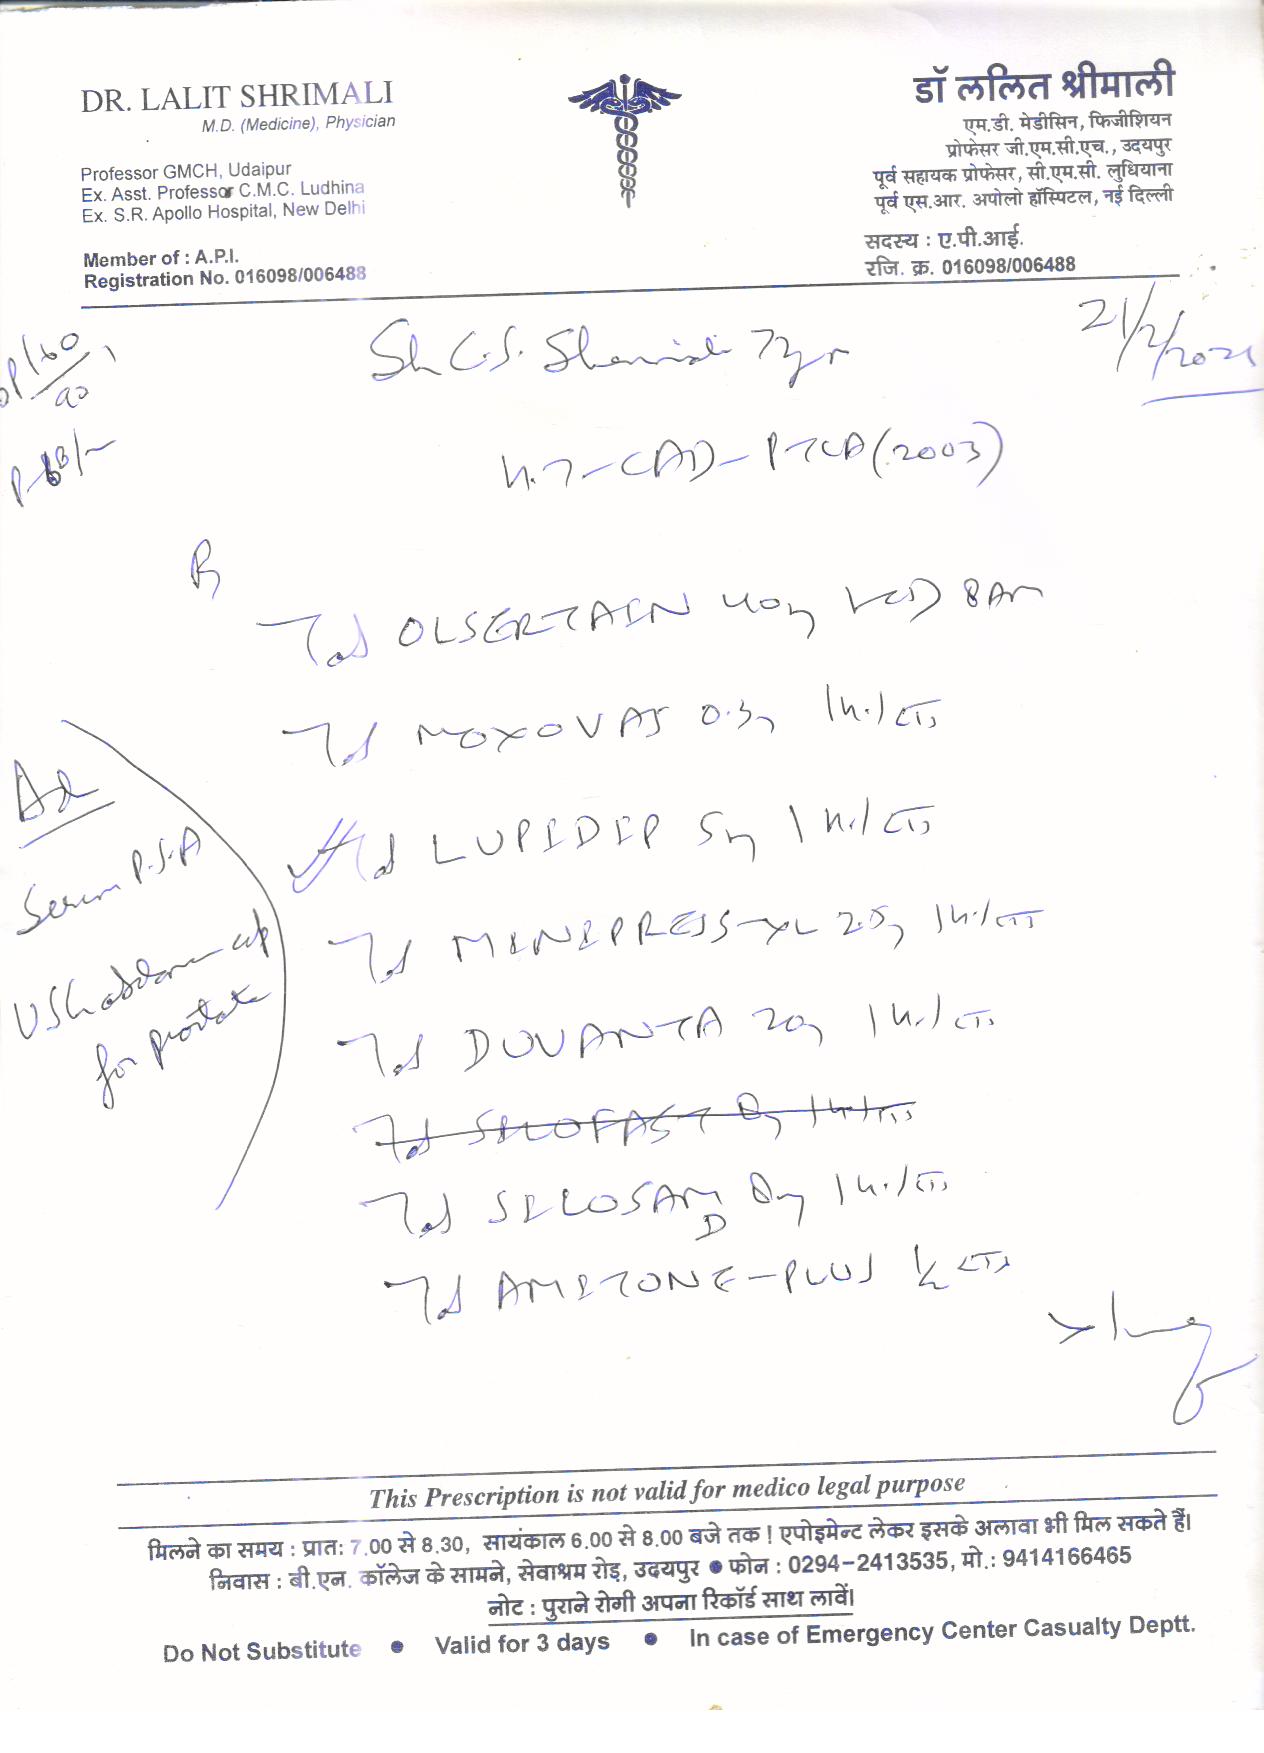 DR. LALIT SHRIMALI
M.D. (Medicine), Physician
Professor GMCH, Udaipur
Ex. Asst. Professor C.M.C. Ludhina
Ex. S.R. Apollo Hospital, New Delhi
Member of : A.P.I.
Registration No. 016098/006488
डॉ ललित श्रीमाली
एम.डी. मेडीसिन, फिजीशियन
प्रोफेसर जी.एम.सी.एच., उदयपुर
पूर्व सहायक प्रोफेसर, सी.एम.सी. लुधियाना
पूर्व एस.आर. अपोलो हॉस्पिटल, नई दिल्ली
सदस्य : ए.पी.आई.
रजि. क्र. 016098/006488
Sh C.S.
H.T-CAD-PTCA (2003)
Tab OLSERTAIN 40mg 8AM
Tab MOXOVAS 0.3mg
Tab LUPIDIP 5mg
Tab MINIPRESS-XL 2.5mg
Tab DUVANTA 20mg
Tab SILOFAST 8mg
Tab SILOSAM D 8mg
Tab AMITONE-PLUS 1/2
Ad
Serum P.S.A
USG abdomen
for prostate
This Prescription is not valid for medico legal purpose
मिलने का समय : प्रातः 7.00 से 8.30, सायंकाल 6.00 से 8.00 बजे तक ! एपोइमेन्ट लेकर इसके अलावा भी मिल सकते हैं।
निवास : बी.एन. कॉलेज के सामने, सेवाश्रम रोड़, उदयपुर ● फोन : 0294-2413535, मो.: 9414166465
नोट : पुराने रोगी अपना रिकॉर्ड साथ लावें।
Do Not Substitute ● Valid for 3 days ● In case of Emergency Center Casualty Deptt.